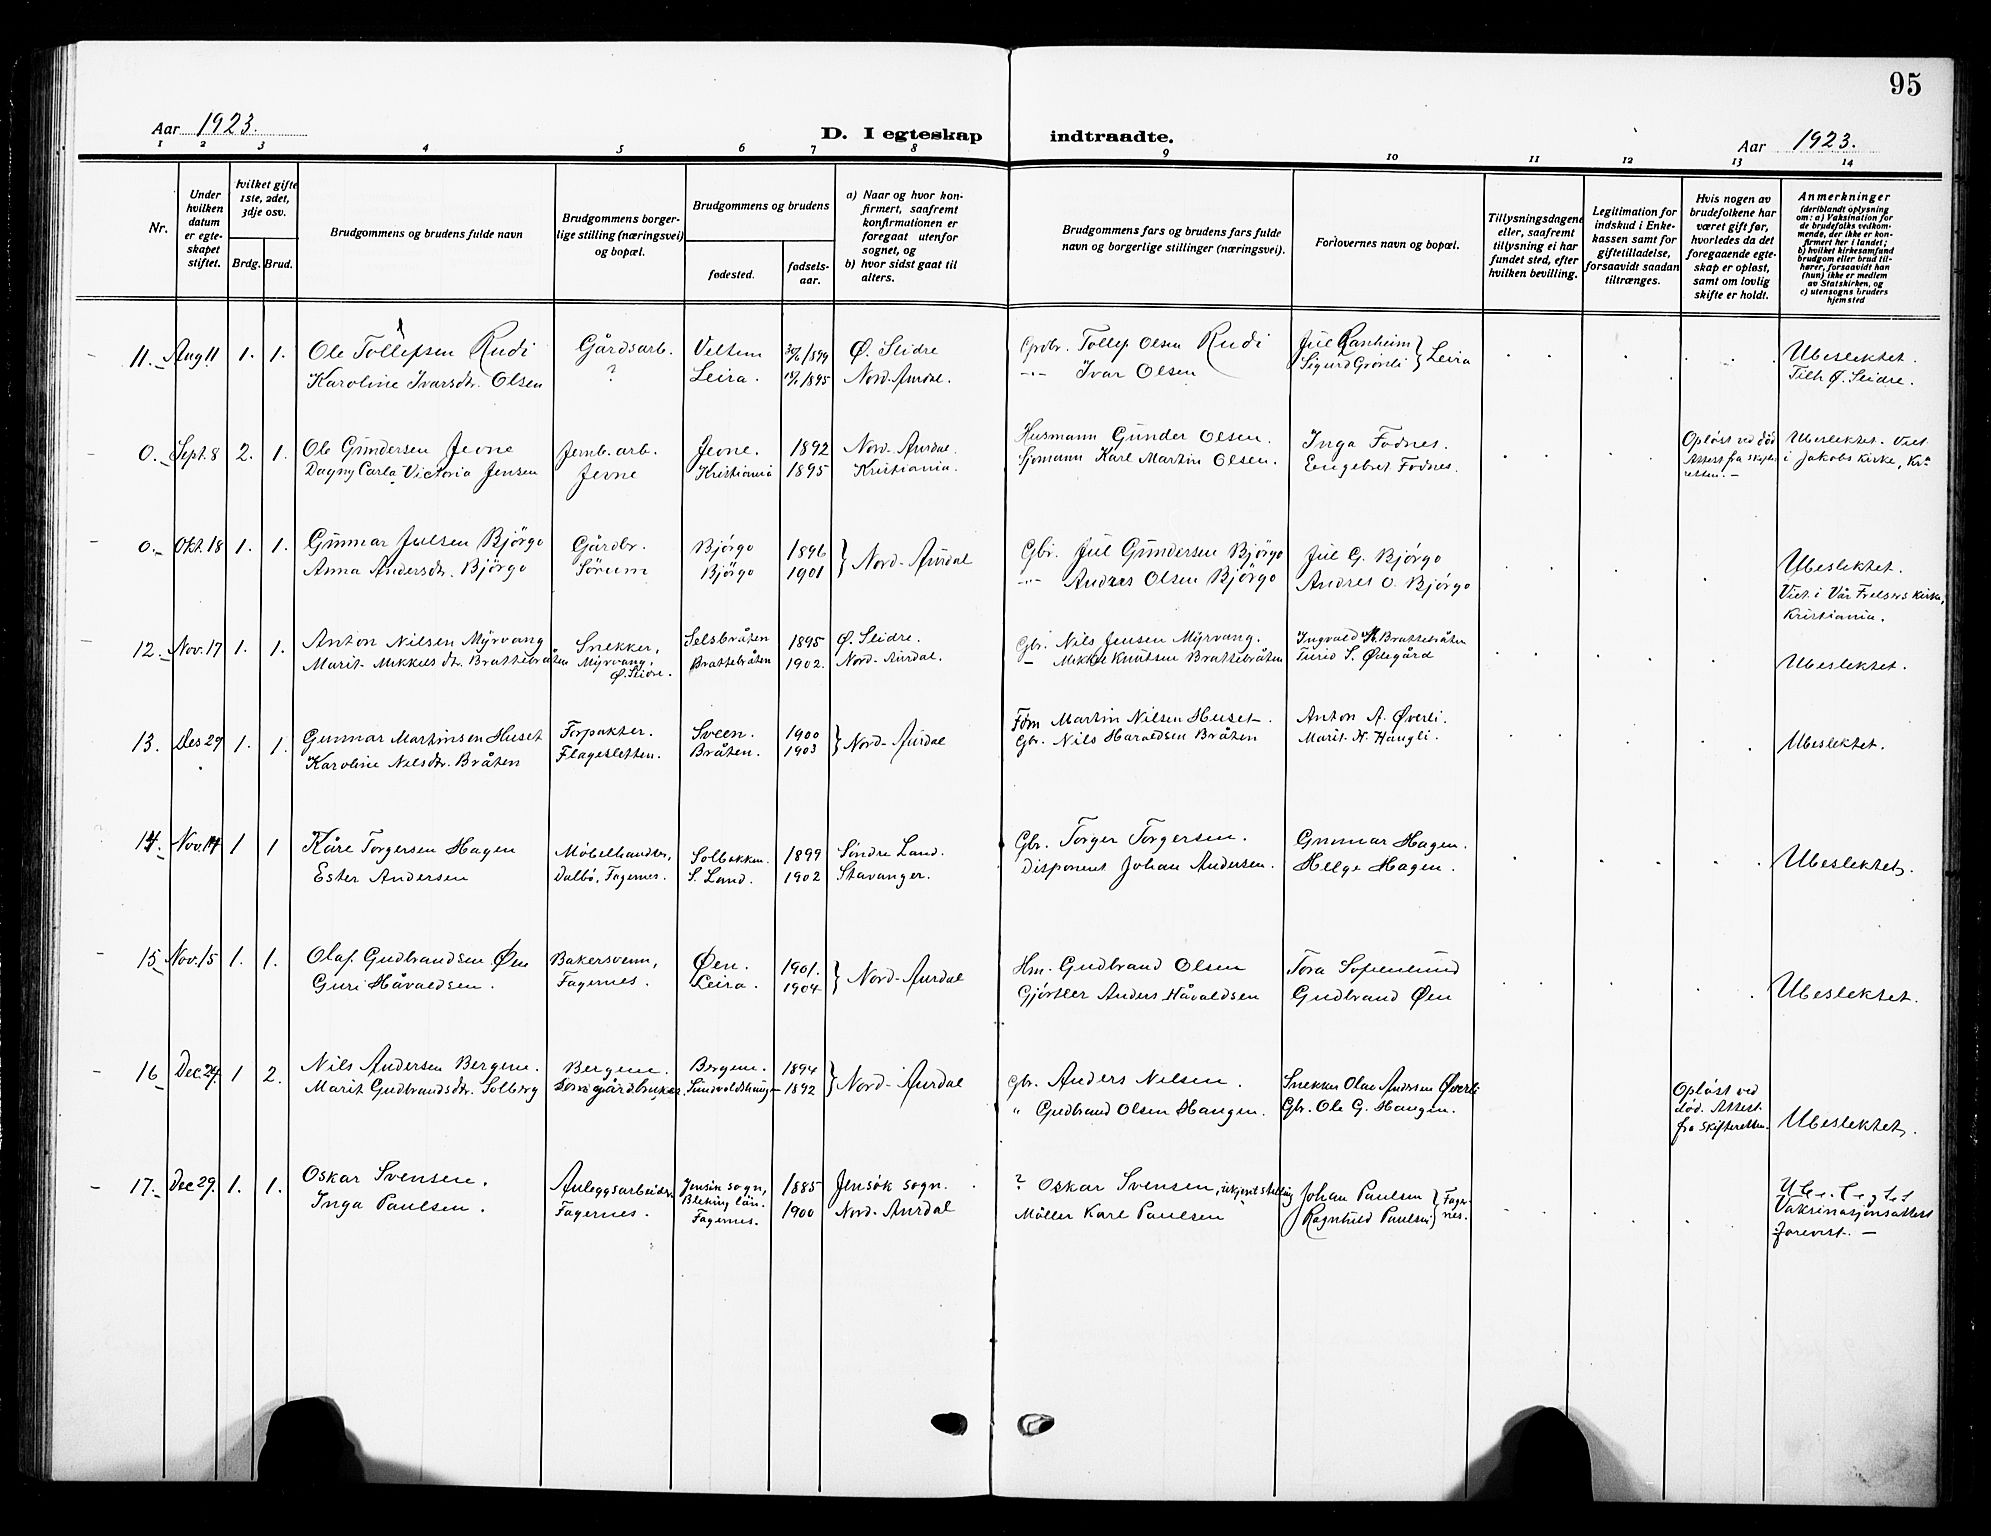 95
Aar 1923.
D. I egteskap indtraadte.
Aar 1923.
1 2 3 4 5 6 7 8 9 10 11 12 13 14
Nr.
Under hvilken datum er egte- skapet stiftet.
hvilket gifte 1ste, 2det, 3dje osv.
Brdg. Brud.
Brudgommens og brudens fulde navn
Brudgommens borger- lige stilling (næringsvei) og bopæl.
Brudgommens og brudens
fødested.
fødsels- aar.
a) Naar og hvor kon- firmert, saafremt konfirmationen er foregaat utenfor sognet, og
b) hvor sidst gaat til alters.
Brudgommens fars og brudens fars fulde navn og borgerlige stillinger (næringsvei).
Forlovernes navn og bopæl.
Tillysningsdagene eller, saafremt tillysning ei har fundet sted, efter hvilken bevilling.
Legitimation for indskud i Enke- kassen samt for giftetilladelse, forsaavidt saadan tiltrænges.
Hvis nogen av brudefolkene har været gift før, hvorledes da det foregaaende egte- skap er opløst, samt om lovlig skifte er holdt.
Anmerkninger
(deriblandt oplysning om: a) Vaksination for de brudefolks vedkom- mende, der ikke er kon- firmert her i landet; b) hvilket kirkesamfund brudgom eller brud til- hører, forsaavidt han (hun) ikke er medlem av Statskirken, og c) utensogns bruders hjemsted
11. Aug 11 1. 1. Ole Tollefsen Rudi Gårdsarb. Veltun 1899 Ø. Slidre Grbr. Tollef Olsen Rudi Jul Ranheim } Leira Ubeslektet.
Karoline Ivarsdtr. Olsen ? Leira. 1895 Nord-Aurdal. -"- Ivar Olsen Sigurd Grönli Tilh Ø. Slidre.
0. Sept. 8 2. 1. Ole Gundersen Jevne Jernb.arb. Jevne. 1892 Nord-Aurdal Husmann Gunder Olsen. Inga Fodnes. Opløst ved död Ubeslektet. Viet
Dagny Carla Victoria Jensen Jevne Kristiania 1895 Kristiania. Sjömann Karl Martin Olsen. Engebret Fodnes. Attest fra skifte- i Jakobs Kirke, Kra
retten. -
0. Okt. 18 1. 1. Gunnar Julsen Björgo Gårdbr. Björgo 1896 } Nord-Aurdal Gbr. Jul Gundersen Björgo Jul G. Björgo Ubeslektet.
Anna Andersdtr. Björgo Sörum Björgo 1901 -"- Andres Olsen Björgo Andres O. Björgo Viet i Vår Frelsers Kirke,
Kristiania.
12. Nov. 17 1. 1. Anton Nilsen Myrvang Snekker, Selsbråten 1895 Ø. Slidre. Gbr. Nils Jensen Myrvang. Ingvald M. Brattebråten
Marit Mikkelsdtr. Brattebråten Myrvang, Brattebråten 1902. Nord-Aurdal. - Mikkel Knutsen Brattebråten Turid S. Ødegård Ubeslektet.
Ø. Slidre.
13. Des 29 1. 1. Gunnar Martinsen Huset Forpakter. Sveen. 1900 } Nord-Aurdal Martin Nilsen Huset. Anton A. Øverli.
Karoline Nilsdtr. Bråten Flagesletten. Bråten. 1903 Gbr. Nils Haraldsen Bråten Marit H. Haugli. Ubeslektet.
14. Nov. 14 1 1 Kåre Torgersen Hagen Möbelhandler, Solbakken. 1899 Söndre Land. Gbr. Torger Torgersen. Gunnar Hagen.
Ester Andersen Dalbo, Fagernes. S. Land. 1902 Stavanger. Disponent Johan Andersen. Helge Hagen. Ubeslektet.
15 Nov. 15 1. 1. Olaf Gudbrandsen Øen Bakersvenn, Øen. 1901. } Nord-Aurdal Hm. Gudbrand Olsen Tora Sofienlund
Guri Håvaldsen. Fagernes. Leira. 1904 Gjörtler Anders Håvaldsen Gudbrand Øen Ubeslektet.
16 Dec. 29. 1 2. Nils Andersen Bergene. Bergene. Bergene. 1894 } Nord-Aurdal Gbr. Anders Nilsen. Snekker Olav Andersen Øverli Opløst ved
Marit Gudbrandsdtr. Solberg gårdbruker. Sundvoldshaugen 1892 " Gudbrand Olsen Haugen. Gbr. Ole G. Haugen. död. Attest
fra skifteretten. Ubeslektet.
17. Dec 29. 1. 1. Oskar Svensen. Anleggsarbeider Jemsök sogn, 1885 Jemsök sogn. ? Oskar Svensen, ukjent stilling Johan Paulsen } Fager- Ubeslektet
Inga Paulsen. Fagernes. Bleking län. 1900 Nord-Aurdal Möller Karl Paulsen Ragnhild Paulsen nes. Vaksinasjonsattest
Fagernes. forevist. -